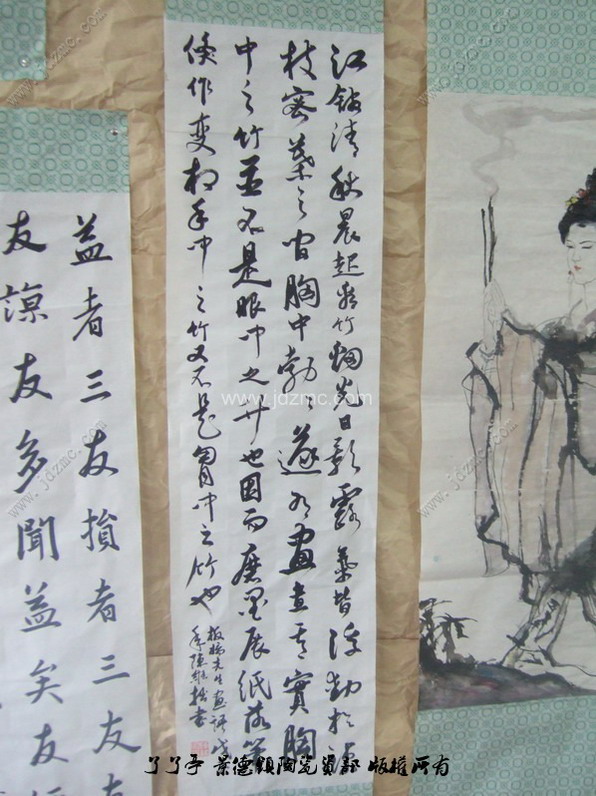 江館清秋晨起看竹烟光日影露氣皆浮動於疎
枝密葉之間胸中勃〻遂有畫意其實胸
中之竹並不是眼中之竹也因而磨墨展紙落筆
倏作變相手中之竹又不是胸中之竹也
板橋先生畫
益者三友損者三友
友諒友多聞益矣友
www.jdzmc.com
www.jdzmc.com
www.jdzmc.com
www.jdzmc.com
www.jdzmc.com
了了亭 景德鎮陶瓷資部 版權所有